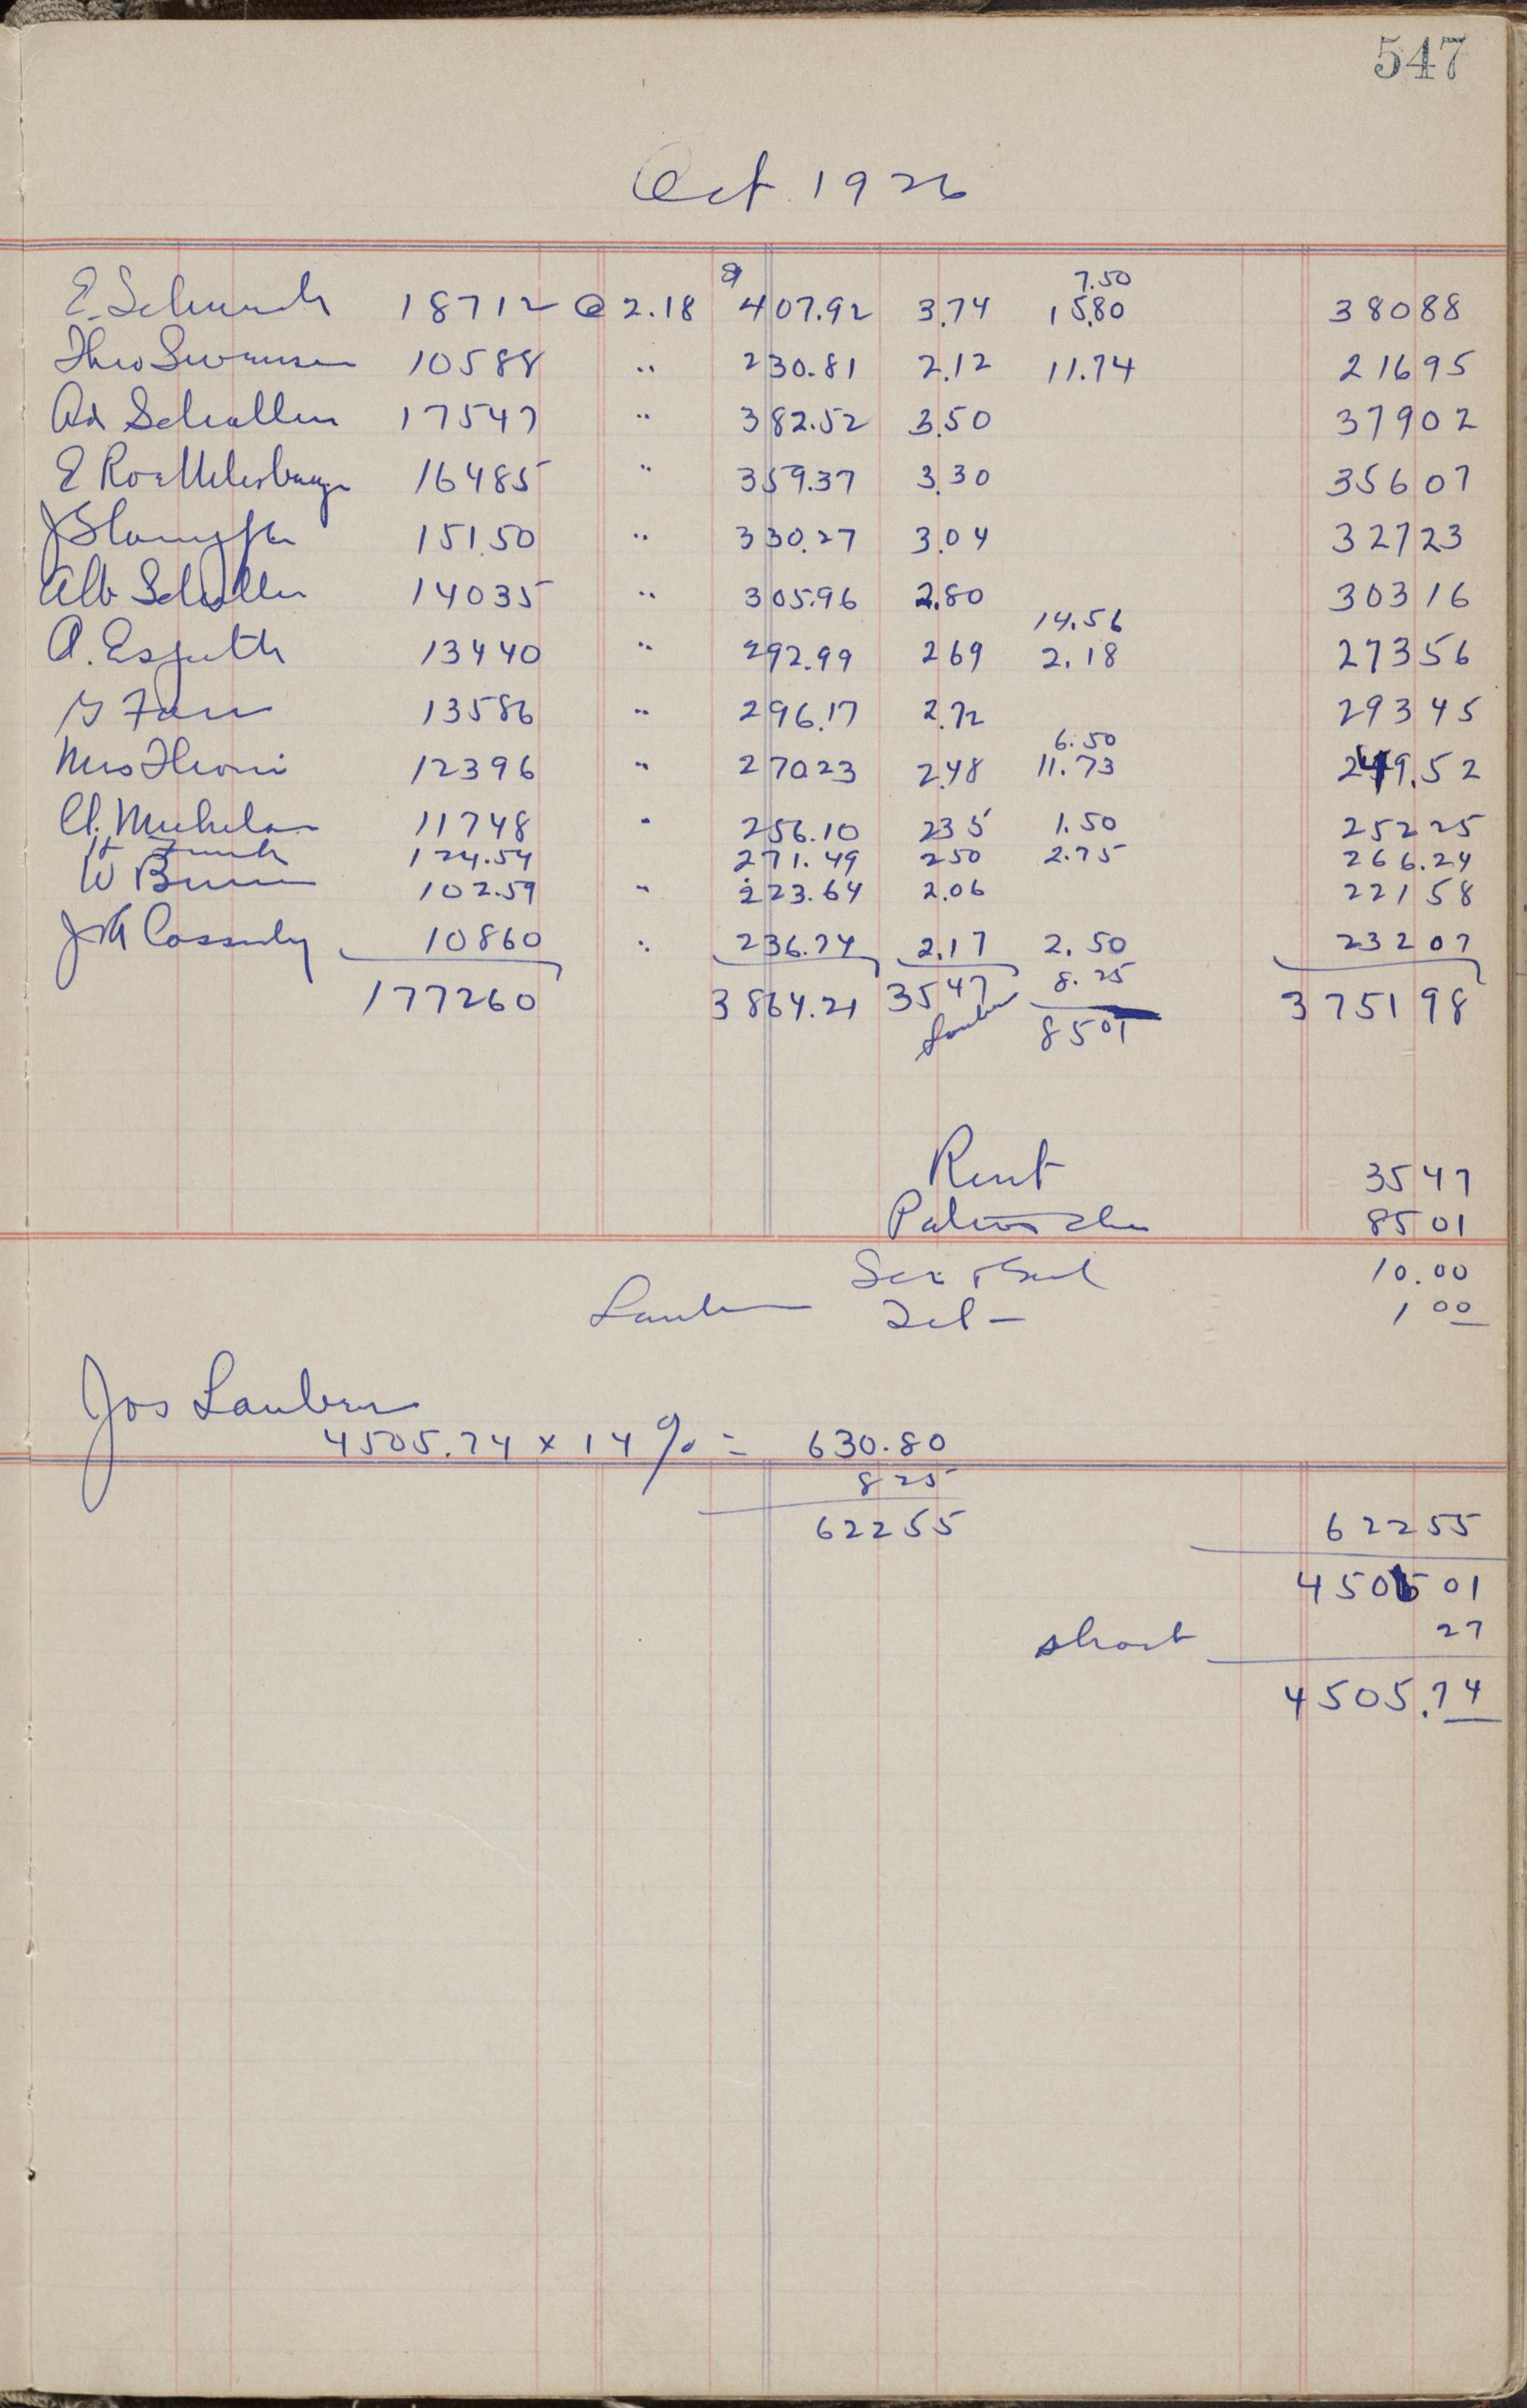 547
Oct. 1926
7.50
E. Schunk 18712 @ 2.18 407.92 3.74 15.80 38088
Theo Swansen 10588 .. 230.81 2.12 11.74 21695
Ad Schallen 17547 .. 382.52 3.50 37902
E 16485 .. 359.37 3.30 35607
J 15150 .. 330.27 3.04 32723
Alb Schallen 14035 .. 305.96 2.80 30316
14.56
A. Espeth 13440 .. 292.99 269 2.18 27356
13586 .. 296.17 2.72 29345
6.50
Mrs Thoni 12396 .. 27023 2.48 11.73 249.52
11748 .. 256.10 235 1.50 25225
124.54 271.49 250 2.75 266.24
W 102.59 .. 223.64 2.06 22158
J A Cassidy 10860 .. 236.74 2.17 2.50 23207
8.25
177260 3864.21 3547 375198
Lauber 8501
Rent 3547
8501
10.00
Lauber Tel - 1 00
Jos Lauber
4505.74 x 14 % = 630.80
825
62255 62255
450501
short 27
4505.74